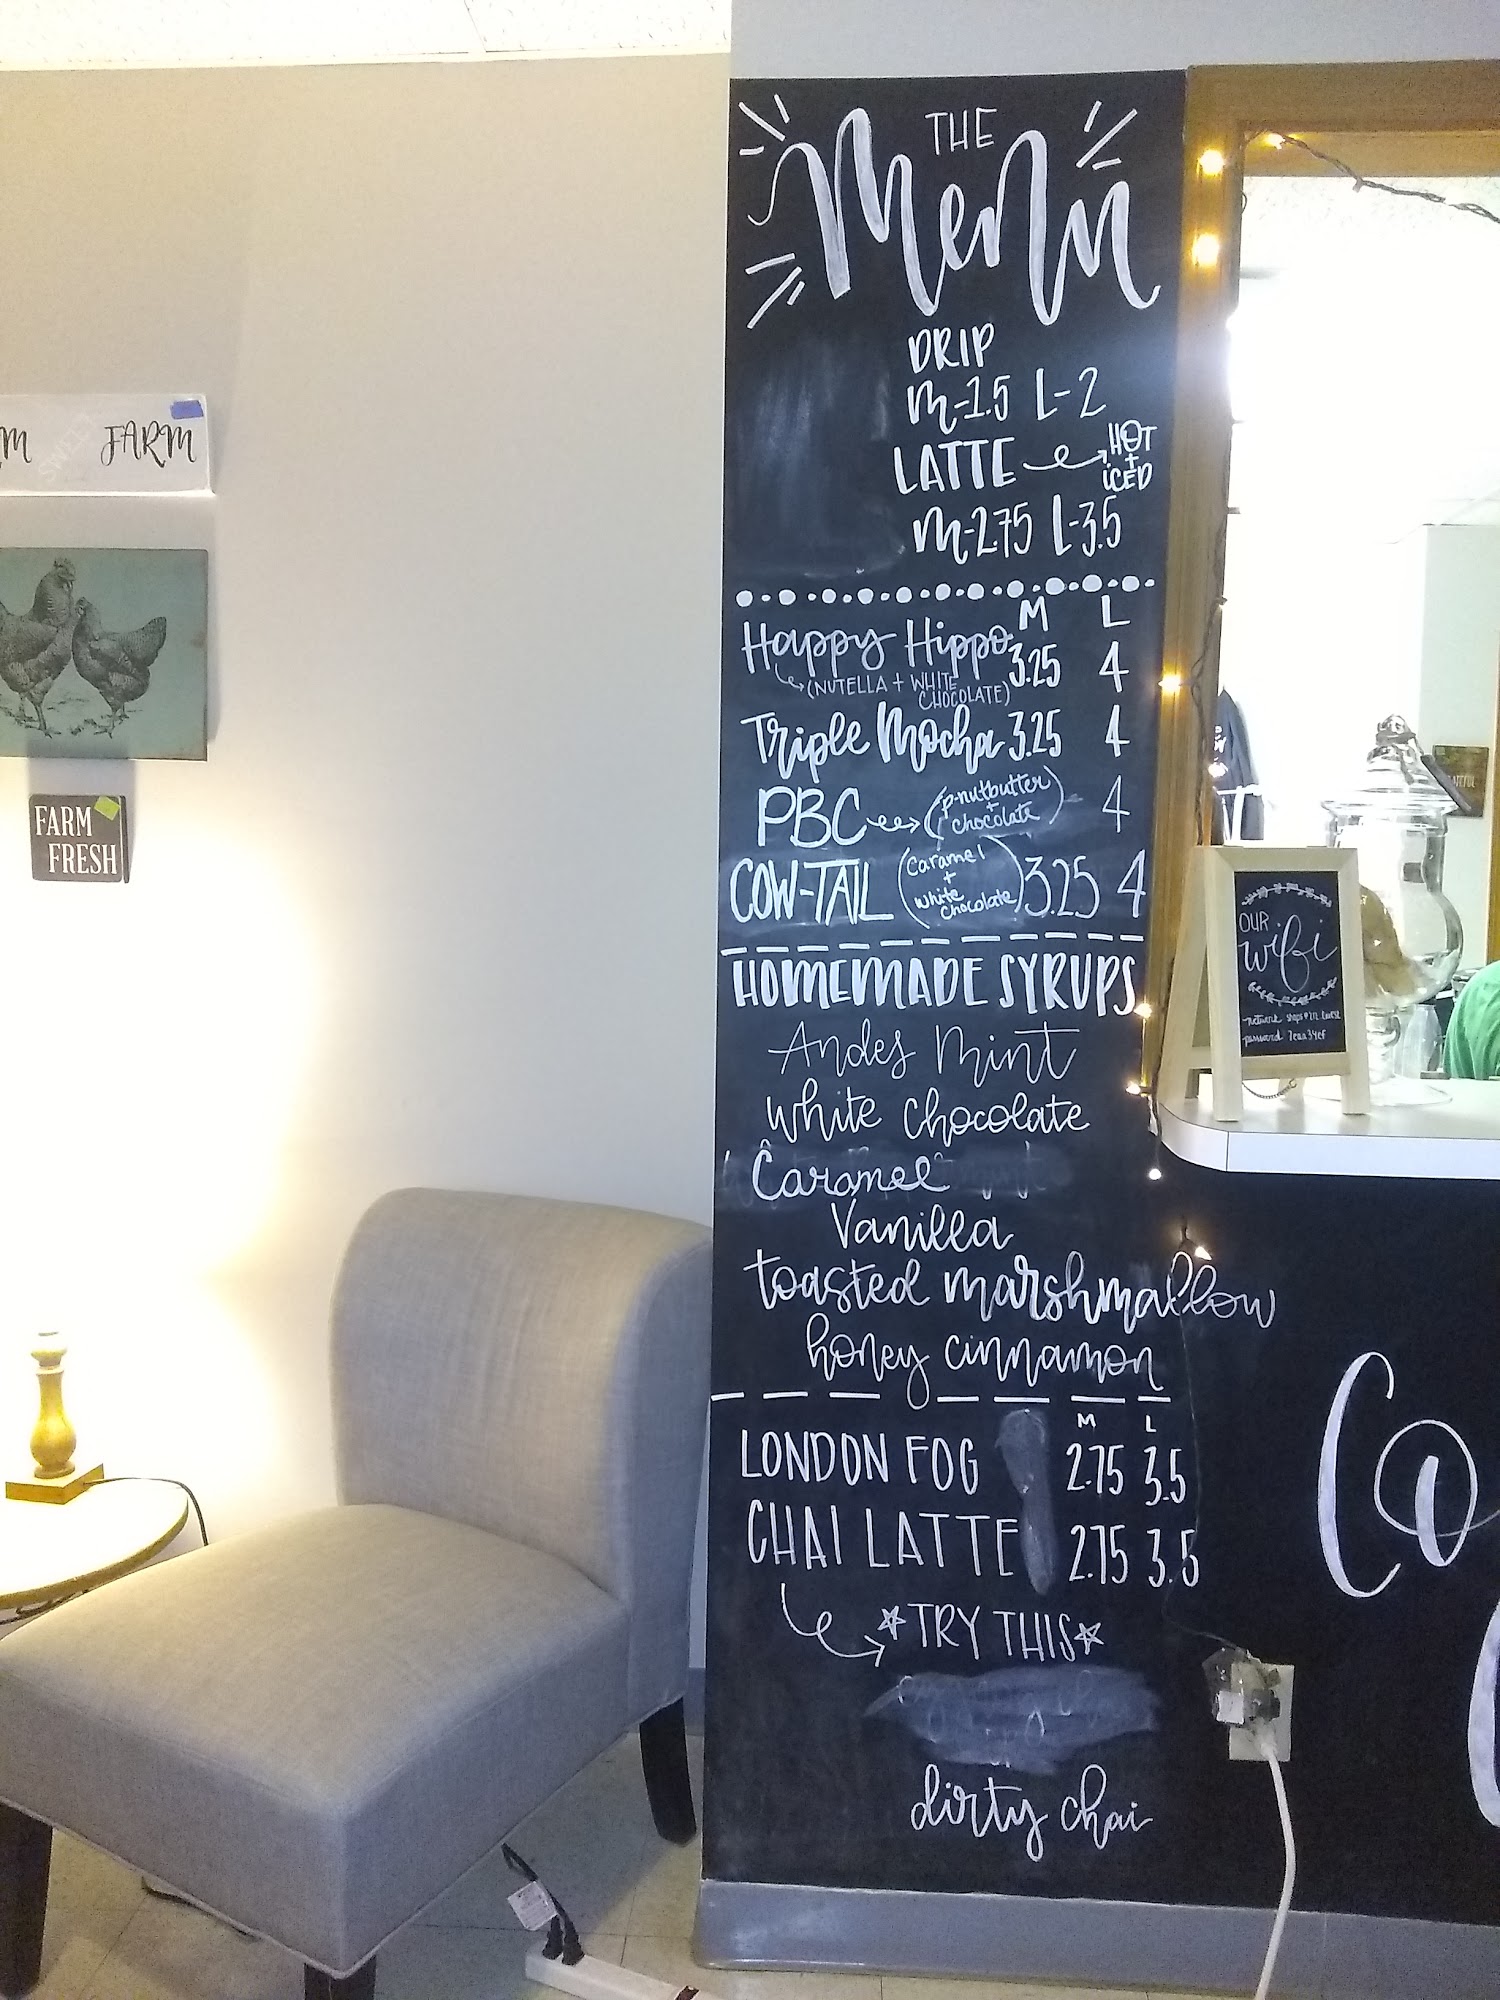 THE
Menu
DRIP
M-1.5 L-2
LATTE HOT
+
ICED
M-2.75 L-3.5
M L
Happy Hippo 3.25 4
(NUTELLA + WHITE
CHOCOLATE)
Triple Mocha 3.25 4
PBC (p-nutbutter
+
chocolate) 4
COW-TAIL (Caramel
+
white
chocolate) 3.25 4
HOMEMADE SYRUPS
Andes Mint
White Chocolate
Caramel
Vanilla
toasted marshmallow
honey cinnamon
M L
LONDON FOG 2.75 3.5
CHAI LATTE 2.75 3.5
TRY THIS
dirty chai
FARM
FARM
FRESH
OUR
wifi
network
password
Co